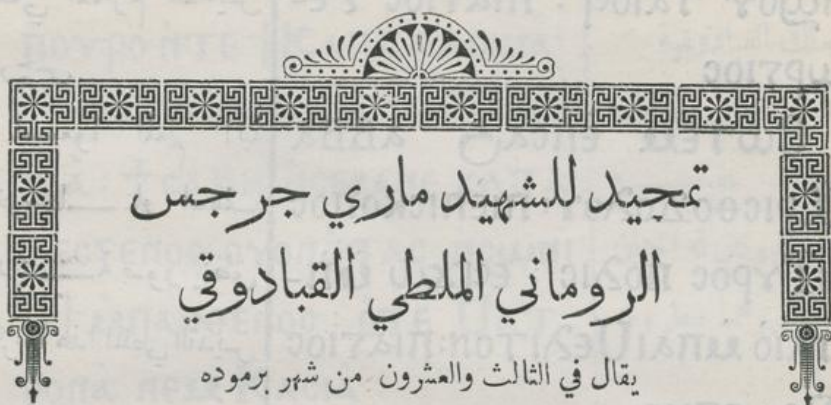 تمجيد للشهيد ماري جرجس
الروماني الملطي القبادوقي
يقال في الثالث والعشرون من شهر برموده